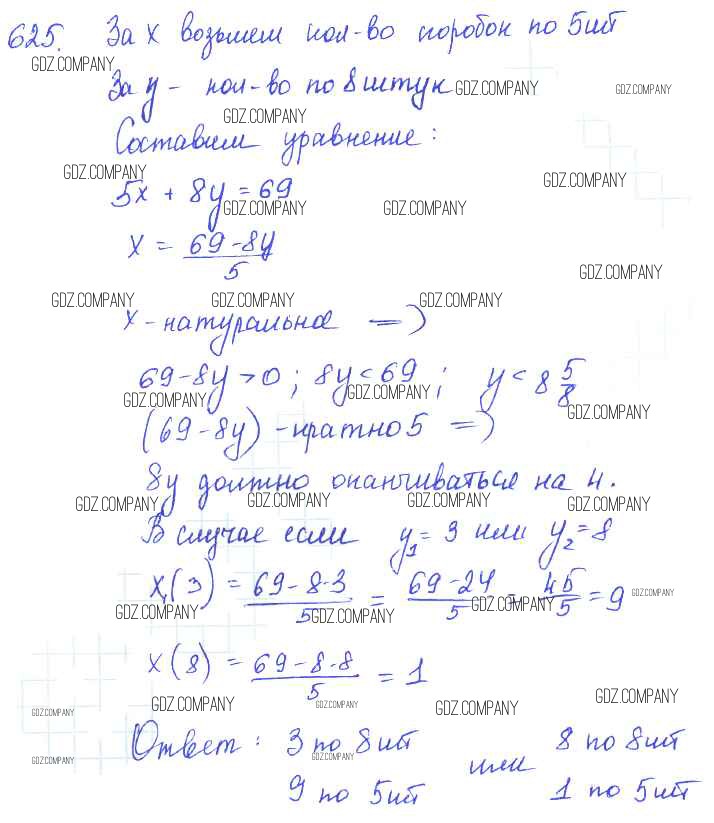 625. За х возьмем кол-во коробок по 5шт
GDZ.COMPANY
За y - кол-во по 8 штук GDZ.COMPANY GDZ.COMPANY
GDZ.COMPANY
Составим уравнение:
GDZ.COMPANY GDZ.COMPANY
5x + 8y = 69
GDZ.COMPANY GDZ.COMPANY
x = (69 - 8y)/5
GDZ.COMPANY
GDZ.COMPANY GDZ.COMPANY GDZ.COMPANY
x - натуральное =>
69 - 8y > 0; 8y < 69; y < 8 5/8
GDZ.COMPANY GDZ.COMPANY GDZ.COMPANY
(69 - 8y) - кратно 5 =>
8y должно оканчиваться на 4.
GDZ.COMPANY GDZ.COMPANY GDZ.COMPANY GDZ.COMPANY
В случае если y₁ = 3 или y₂ = 8
x₁(3) = (69 - 8·3)/5 = (69 - 24)/5 = 45/5 = 9
GDZ.COMPANY GDZ.COMPANY GDZ.COMPANY GDZ.COMPANY
x(8) = (69 - 8·8)/5 = 1
GDZ.COMPANY GDZ.COMPANY GDZ.COMPANY GDZ.COMPANY GDZ.COMPANY
Ответ: 3 по 8шт или 8 по 8шт
GDZ.COMPANY GDZ.COMPANY
9 по 5шт 1 по 5шт